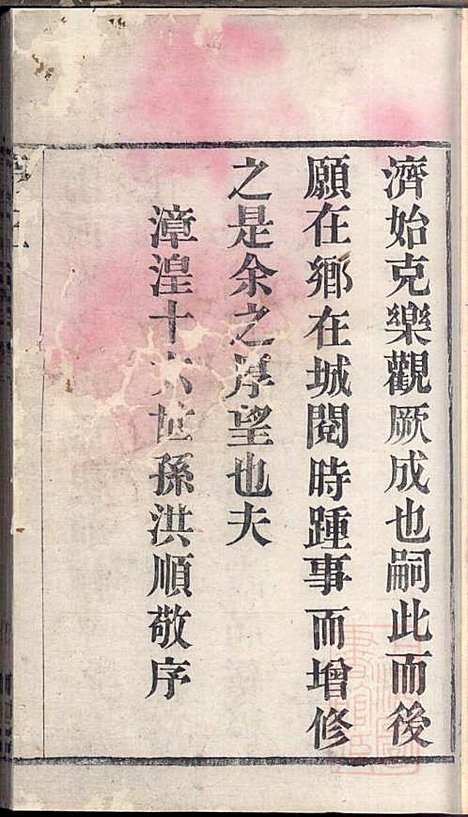 濟始克樂觀厥成也嗣此而後
願在鄉在城閱時踵事而增修
之是余之厚望也夫
漳湟十六世孫洪順敬序